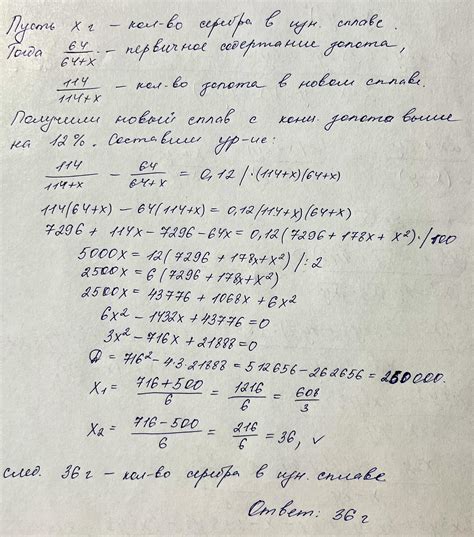 Пусть x г – кол-во серебра в изн. сплаве.
Тогда 64/(64+x) – первичное содержание золота,
114/(114+x) – кол-во золота в новом сплаве.
Получили новый сплав с конц. золота выше
на 12%. Составим ур-ие:
114/(114+x) – 64/(64+x) = 0,12 /·(114+x)(64+x)
114(64+x) – 64(114+x) = 0,12(114+x)(64+x)
7296 + 114x – 7296 – 64x = 0,12(7296 + 178x + x²) ·/100
5000x = 12(7296 + 178x + x²) /:2
2500x = 6(7296 + 178x + x²)
2500x = 43776 + 1068x + 6x²
6x² – 1432x + 43776 = 0
3x² – 716x + 21888 = 0
Д = 716² – 4·3·21888 = 512656 – 262656 = 250000.
x₁ = (716+500)/6 = 1216/6 = 608/3
x₂ = (716–500)/6 = 216/6 = 36, ✓
след. 36 г – кол-во серебра в изн. сплаве
Ответ: 36 г